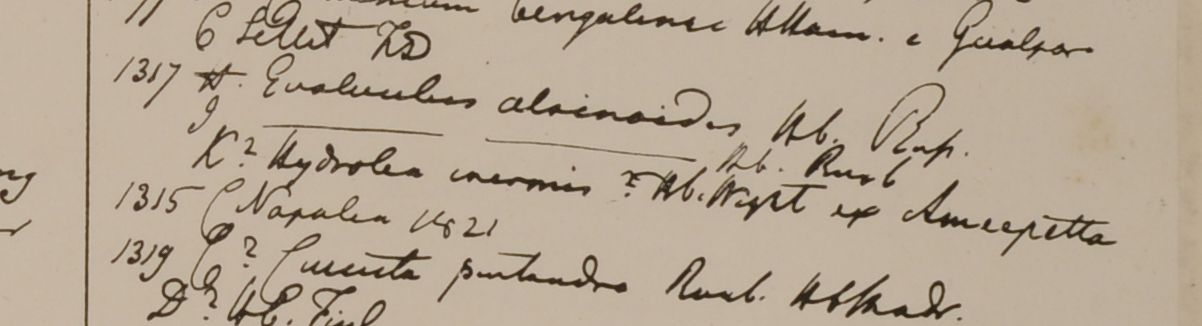 bengalense Wall. e Gualpar
C Sillet FD
1317 H. Evolvulus alsinoides Hb. Rup.
I Hb. Roxb
K? Hydrolea inermis ? Hb. Wight ex Ameepetta
1315 C Napalia 1821
1319 C? Cuscuta pentandra Roxb. Hb Madr.
D? Hb. Finl